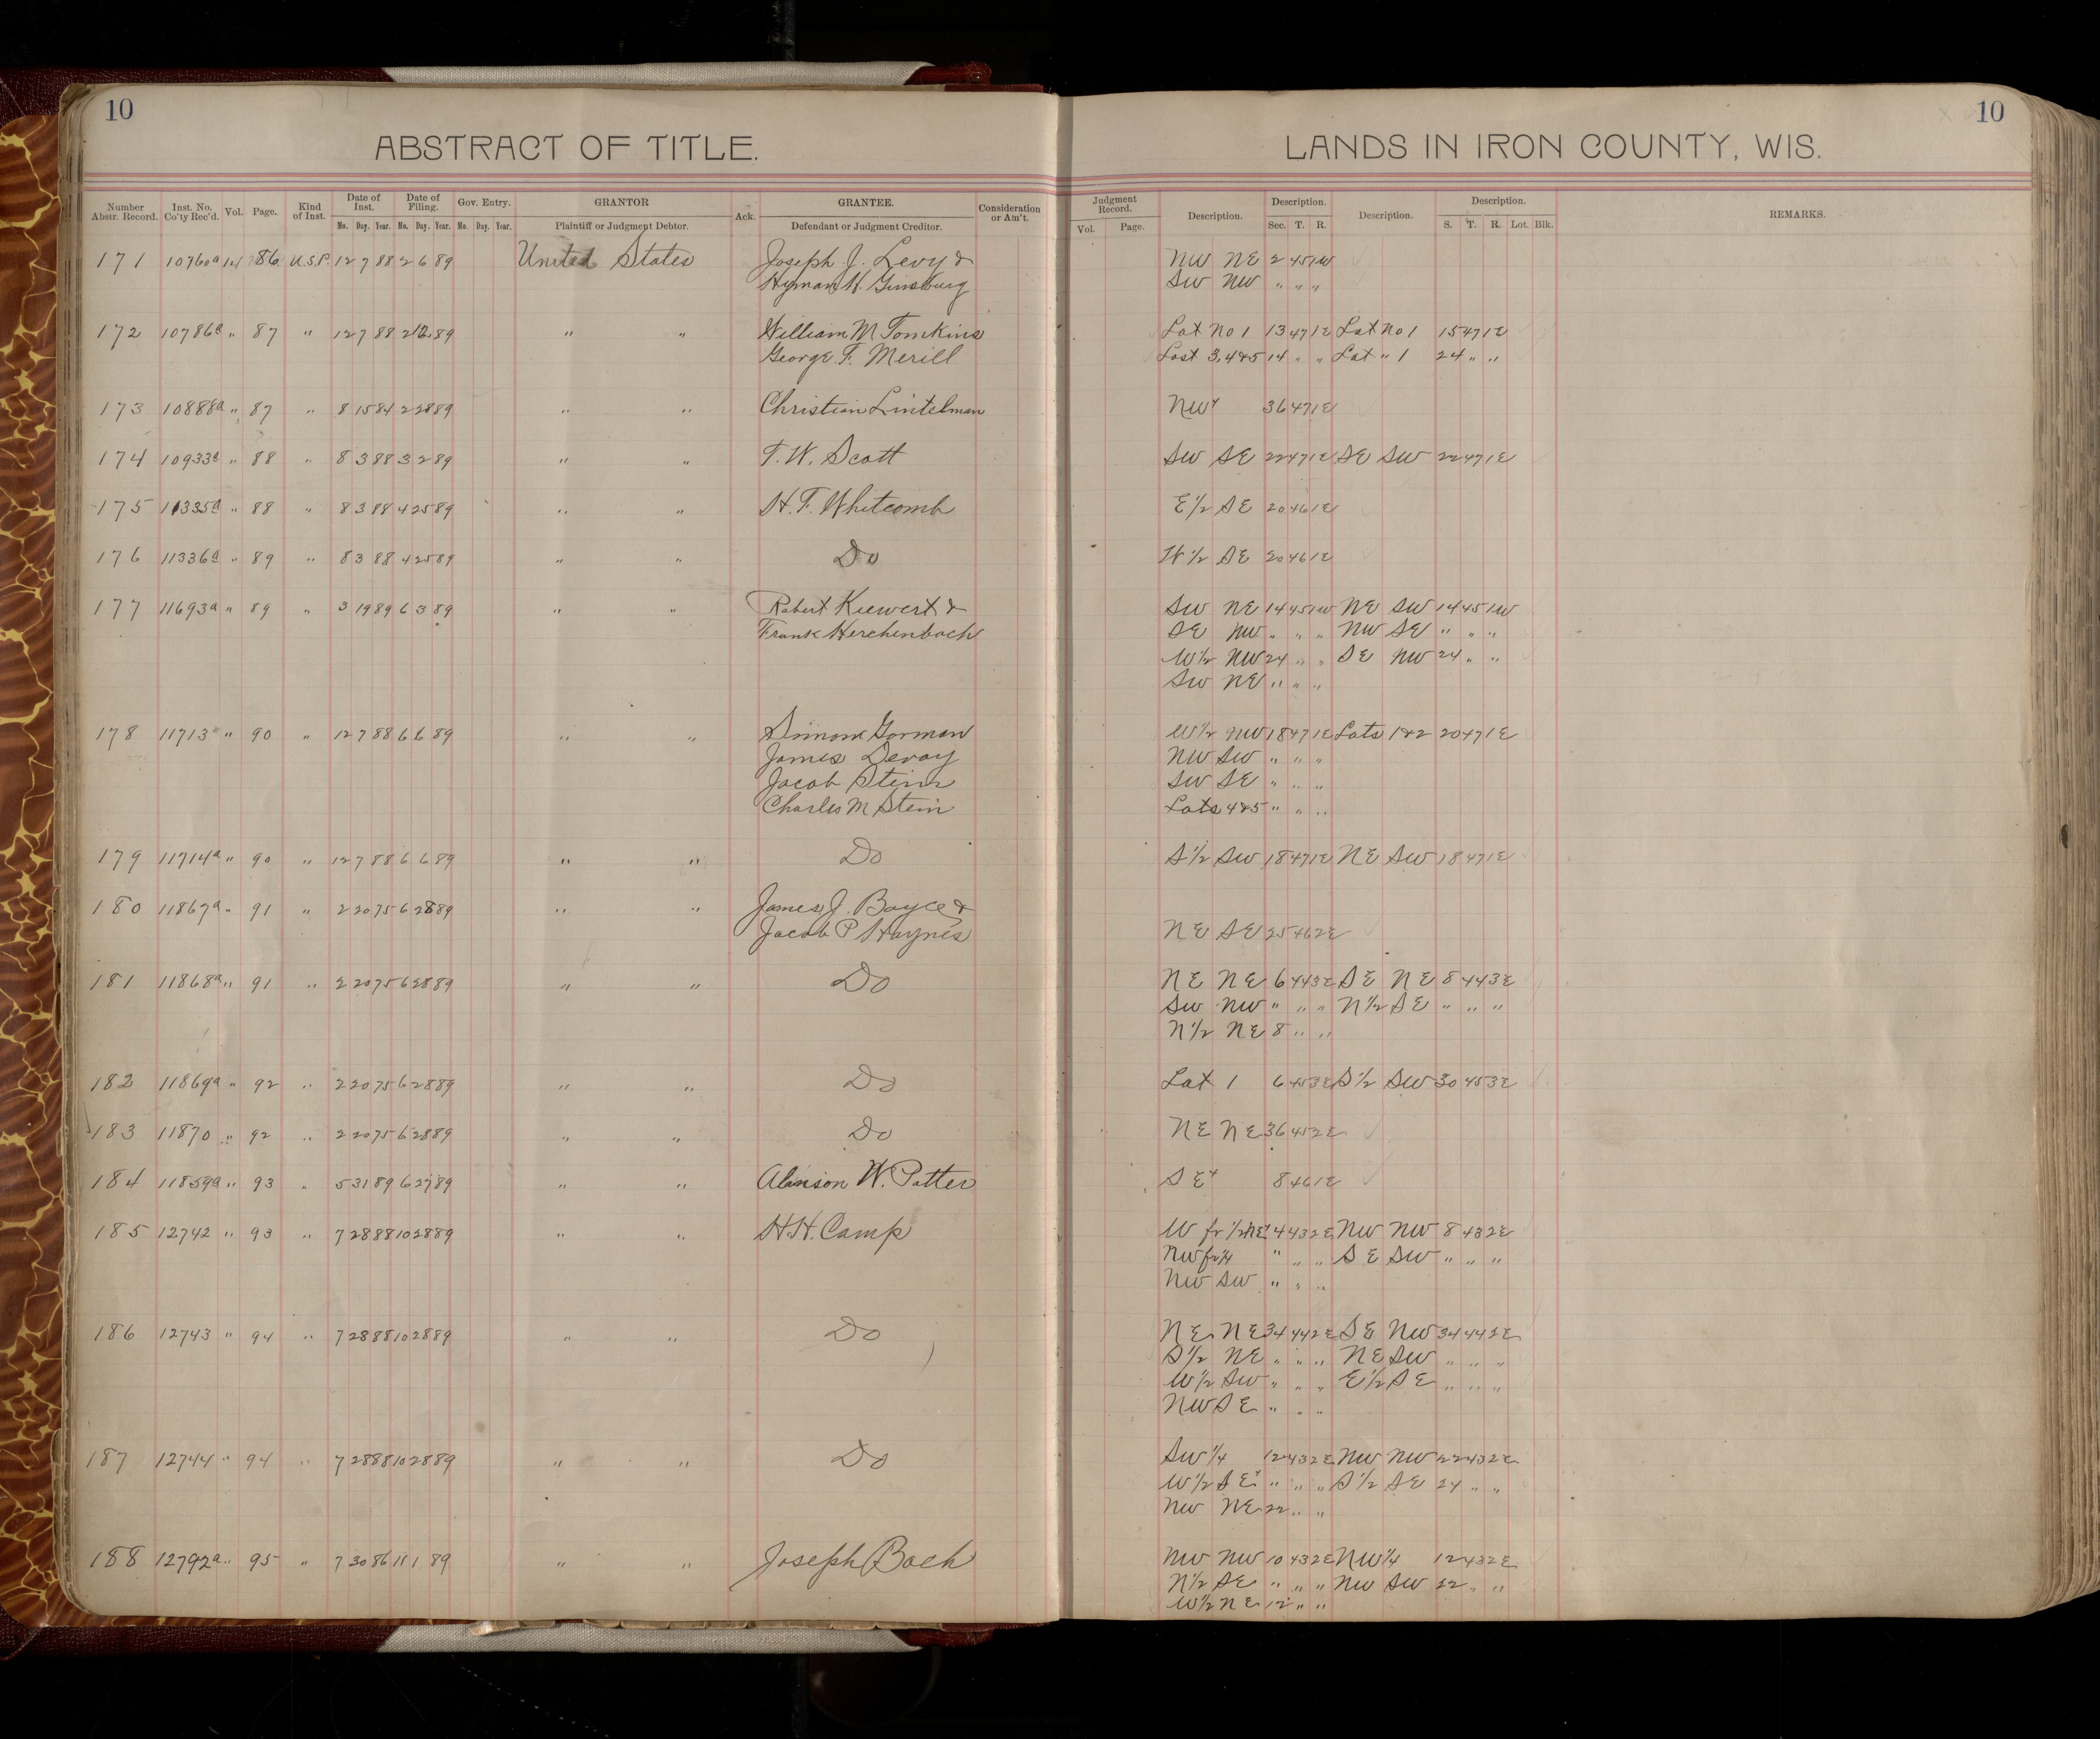 10
10
ABSTRACT OF TITLE.
LANDS IN IRON COUNTY, WIS.
Number Abstr. Record. Inst. No. Co'ty Rec'd. Vol. Page. Kind of Inst. Date of Inst. Date of Filing. Gov. Entry. GRANTOR Ack. GRANTEE. Consideration or Am't. Judgment Record. Description. Description. Description. Description. REMARKS.
Mo. Day. Year. Mo. Day. Year. Mo. Day. Year. Plaintiff or Judgment Debtor. Defendant or Judgment Creditor. Vol. Page. Sec. T. R. S. T. R. Lot. Blk.
171 10760a 14 86 U.S.P. 12 7 88 2 6 89 United States Joseph J. Levy & NW NE 2 45 1W
Hyman H. Ginsburg SW NW " " "
172 10786a " 87 " 12 7 88 2 12 89 " " William M Tomkins Lot No 1 13 47 1E Lot No 1 15 47 1E
George F. Merill Lost 3,4&5 14 " " Lot " 1 24 " "
173 10888a " 87 " 8 15 84 2 28 89 " " Christian Lintelman NW4 36 47 1E
174 10933a " 88 " 8 3 88 3 2 89 " " T. W. Scott SW SE 22 47 1E SE SW 22 47 1E
175 11335a " 88 " 8 3 88 4 25 89 " " H. F. Whitcomb E 1/2 SE 20 46 1E
176 11336a " 89 " 8 3 88 4 25 89 " " Do W 1/2 SE 20 46 1E
177 11693a " 89 " 3 19 89 6 3 89 " " Robert Kiewert & SW NE 14 45 1W NE SW 14 45 1W
Frank Herchenbach SE NW " " " NW SE " " "
W 1/2 NW 24 " " SE NW 24 " "
SW NE " " "
178 11713a " 90 " 12 7 88 6 6 89 " " Simon Gorman W 1/2 NW 18 47 1E Lots 1&2 20 47 1E
James Devoy NW SW " " "
Jacob Stein SW SE " " "
Charles M Stein Lots 4&5 " " "
179 11714a " 90 " 12 7 88 6 6 89 " " Do S 1/2 SW 18 47 1E NE SW 18 47 1E
180 11867a " 91 " 2 20 75 6 28 89 " " James J. Boyce &
Jacob P Haynes NE SE 25 46 2E
181 11868a " 91 " 2 20 75 6 28 89 " " Do NE NE 6 44 3E SE NE 8 44 3E
SW NW " " " N 1/2 SE " " "
N 1/2 NE 8 " "
182 11869a " 92 " 2 20 75 6 28 89 " " Do Lot 1 6 45 3E S 1/2 SW 30 45 3E
183 11870 " 92 " 2 20 75 6 28 89 " " Do NE NE 36 45 2E
184 11859a " 93 " 5 31 89 6 27 89 " " Alanson W. Potter SE4 8 46 1E
185 12742 " 93 " 7 28 88 10 28 89 " " H.H. Camp W fr 1/2 NE4 4 43 2E NW NW 8 43 2E
NW fr 1/4 " " " SE SW " " "
NW SW " " "
186 12743 " 94 " 7 28 88 10 28 89 " " Do NE NE 34 44 2E SE NW 34 44 2E
S 1/2 NE " " " NE SW " " "
W 1/2 SW " " " E 1/2 SE " " "
NW SE " " "
187 12744 " 94 " 7 28 88 10 28 89 " " Do SW 1/4 12 43 2E NW NW 22 43 2E
W 1/2 SE4 " " " S 1/2 SE 24 " "
NW NE 22 " "
188 12792a " 95 " 7 30 86 11 1 89 " " Joseph Boch NW NW 10 43 2E NW 1/4 12 43 2E
N 1/2 SE " " " NW SW 22 " "
W 1/2 NE 12 " "